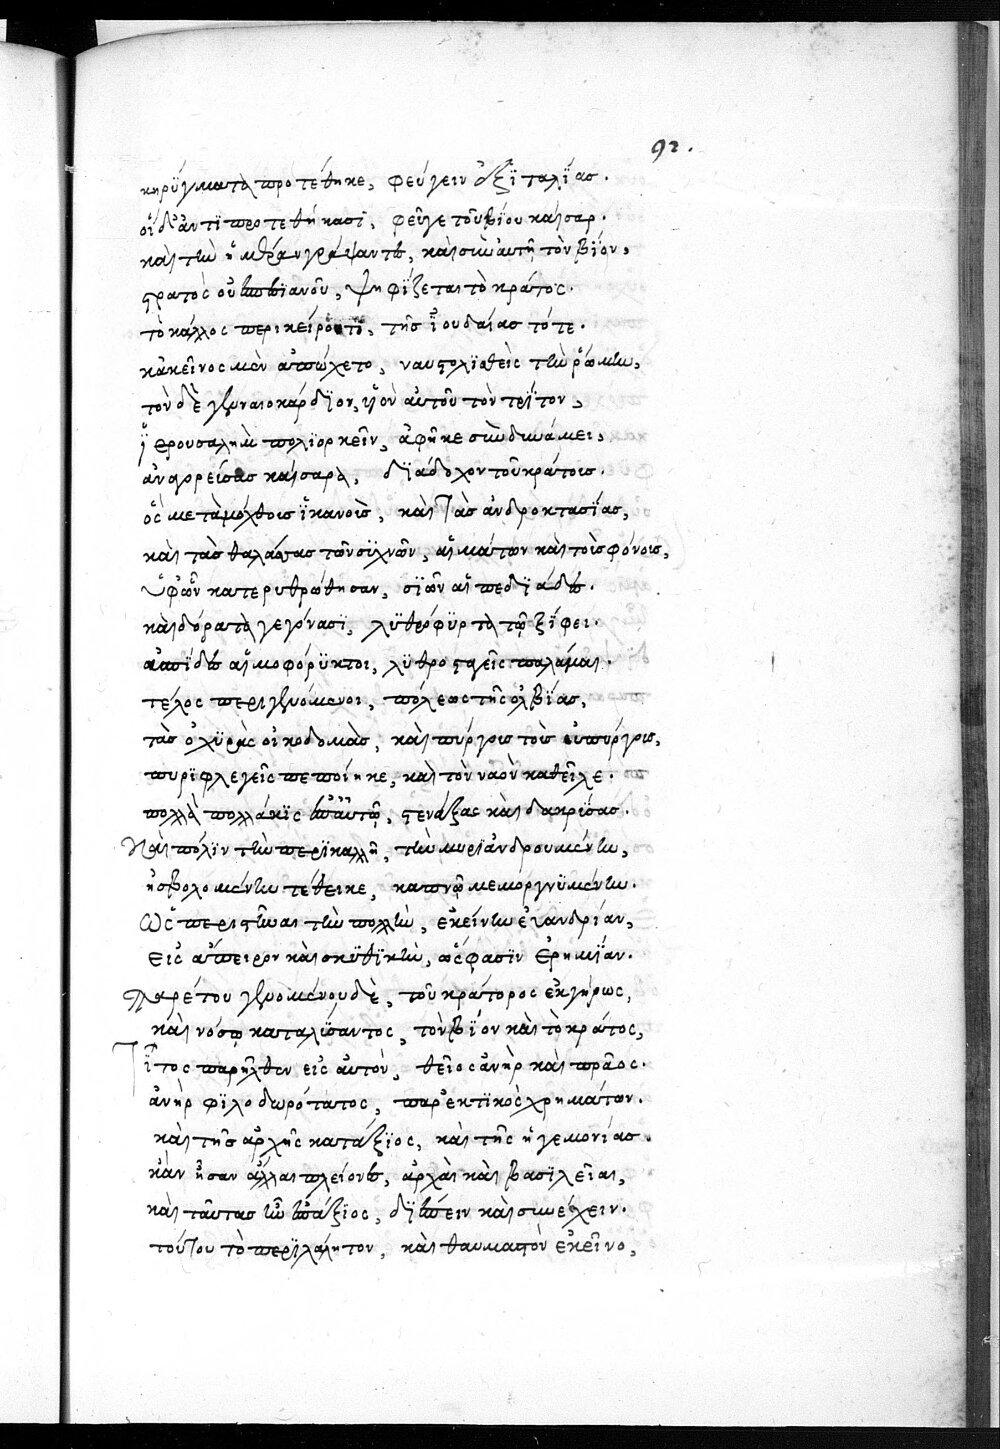 92.
κηρύγματα προτέθηκε, φεύγειν ἐξ ἰταλίας.
οἱ δ' ἀντιπροτεθήκασι, φεῦγε τοῦ βίου καῖσαρ.
καὶ τὴν ἡμέραν γράψαντες, καὶ σὺν αὐτῇ τὸν βίον,
στρατὸς οὐεσπεσιανοῦ, ψηφίζεται τὸ κράτος.
τὸ κάλλος περικείροντι, τῆς ἰουδαίας τότε.
κἀκεῖνος μὲν ἀπῴχετο, ναυστολισθεὶς τὴν ῥώμην,
τὸν δὲ γενναιοκάρδιον, υἱὸν αὐτοῦ τὸν τρίτον,
ἱερουσαλὴμ πολιορκεῖν, ἀφῆκε σὺν δυνάμει,
ἀναγορεύσας καίσαρα, διάδοχον τοῦ κράτους.
ὃς μετὰ μόχθους ἱκανοὺς, καὶ τὰς ἀνδροκτασίας,
καὶ τὰς θαλάσσας τῶν συχνῶν, αἱμάτων καὶ τοὺς φόνους,
ὑφ' ὧν κατερυθρώθησαν, σιὼν αἱ πεδιάδες.
καὶ δόρατα γεγόνασι, λυθρόφυρτα τῷ ξίφει.
ἀσπίδες αἱμοφόρυκτοι, λυθροσταγεῖς παλάμαι.
τέλος περιγενόμενοι, πόλεως τῆς ὀλβίας,
τὰς ὀχυρὰς οἰκοδομὰς, καὶ πύργους τοὺς εὐπύργους,
πυριφλεγεῖς πεποίηκε, καὶ τὸν ναὸν καθεῖλε.
πολλὰ πολλάκις ἐπ' αὐτῷ, στενάξας καὶ δακρύσας.
Καὶ πόλιν τὴν περικαλλῆ, τὴν μυριανδρουμένην,
ἠσβολωμένην τέθεικε, καπνῷ μεμοργνυμένην.
Ὡς περιστῆναι τὴν πολλὴν, ἐκείνην εὐανδρίαν,
εἰς ἄπειρον καὶ σκυθικὴν, ὥς φασιν ἐρημίαν.
Παρέτου γενομένου δὲ, τοῦ κράτορος ἐκ γήρως,
καὶ νόσῳ καταλύσαντος, τὸν βίον καὶ τὸ κράτος,
Τῖτος παρῆλθεν εἰς αὐτὸν, θεῖος ἀνὴρ καὶ πρᾶος.
ἀνὴρ φιλοδωρότατος, παρεκτικὸς χρημάτων.
καὶ τῆς ἀρχῆς κατάξιος, καὶ τῆς ἡγεμονίας.
κἂν ἦσαν ἄλλαι πλείονες, ἀρχαὶ καὶ βασιλεῖαι,
καὶ ταύτας ἦν ἐπάξιος, διέπειν καὶ συνέχειν.
τούτου τὸ περιλάλητον, καὶ θαυμαστὸν ἐκεῖνο,